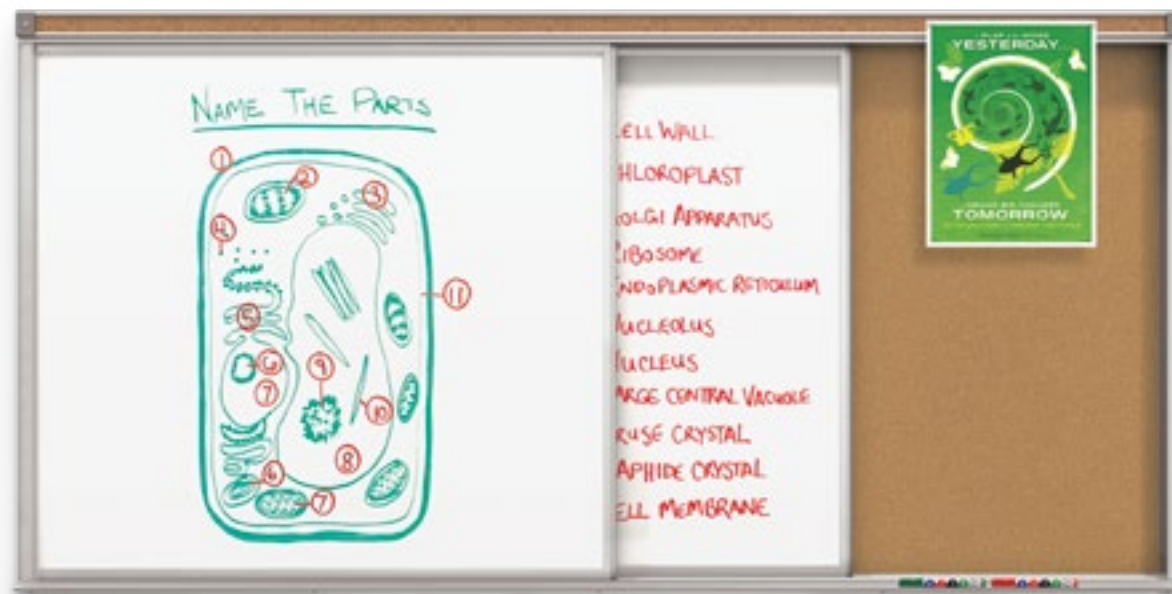 NAME THE PARTS
1
2
3
4
5
11
6
7
9
10
8
6
7
ELL WALL
HLOROPLAST
OLGI APPARATUS
IBOSOME
NDOPLASMIC RETICULUM
UCLEOLUS
UCLEUS
ARGE CENTRAL VACUOLE
RUSE CRYSTAL
APHIDE CRYSTAL
ELL MEMBRANE
YESTERDAY
TOMORROW